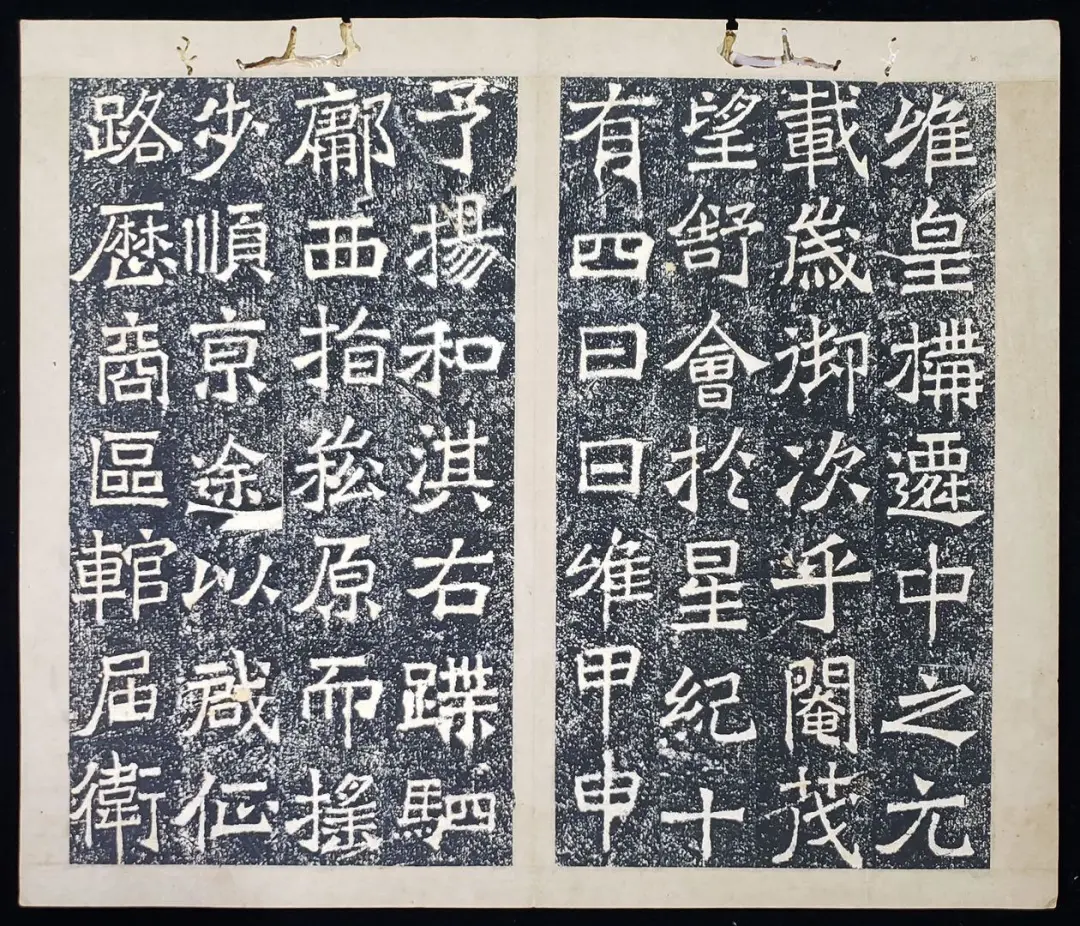 唯皇搆遷中之元
載歲御次乎閹茂
望舒會於星紀十
有四日日唯甲申
予揚和淇右蹀駟
鄘西指崧原而搖
步順京途以啟征
路歷商區輨屆衛